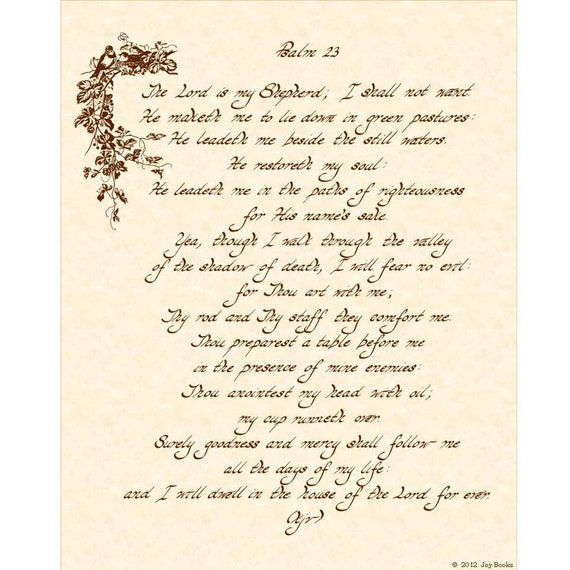 Psalm 23
The Lord is my Shepherd; I shall not want.
He maketh me to lie down in green pastures:
He leadeth me beside the still waters.
He restoreth my soul:
He leadeth me in the paths of righteousness
for His name's sake.
Yea, though I walk through the valley
of the shadow of death, I will fear no evil:
for Thou art with me;
Thy rod and Thy staff they comfort me.
Thou preparest a table before me
in the presence of mine enemies:
Thou anointest my head with oil;
my cup runneth over.
Surely goodness and mercy shall follow me
all the days of my life:
and I will dwell in the house of the Lord for ever.
(kjv)
© 2012 Joy Books